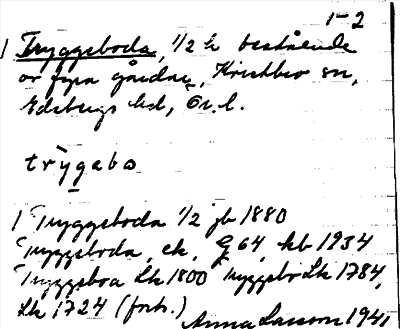 1-2
1 Tryggeboda, 1/2 h bestående
av fyra gårdar, Knistbro sn,
Edsbergs hd, Ö.l.
trygabo
1 Tryggeboda 1/2 jb 1880
Tryggeboda, ek, G 64, kb 1934
Tryggboa Lk 1800 Tryggbo Lk 1784,
Lk 1724 (forts.)
Anna Larsson 1941